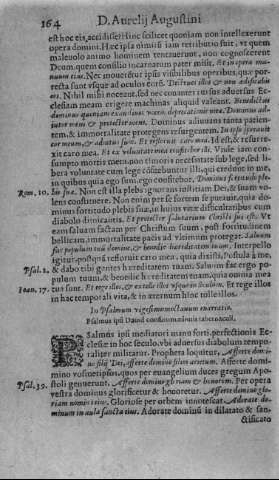 164 D. Aurelij Augustini
est hoc eis, accidisse! Hinc scilicet quoniam non intellexerunt
opera domini. Hæc ipsa nimisũ iam retributio fuit, vt quem
maleuolo animo hominem tentauerunt, non cognoscerent
Deum, quem consilio incarnatum pater misit, Et in opera ma-
nuum eius. Nec mouentur ipsis visibilibus operibus, quæ por-
recta sunt vsque ad oculos eorũ. Destrues illos & non ædificabis
eos. Nihil mihi noceant, sed nec conantes rursus aduersus Ec-
clesiam meam erigere machinas aliquid valeant. Benedictus
dominus quoniam exaudiuit vocem deprecationis meæ, Dominus ad-
iutor meus & protector meus. Dominus adiuuans tanta patien-
tem, & immortalitate protegens resurgentem. In ipso sperauit
cor meum, & adiutus sum. Et refloruit caro mea. Id est, & resurre-
xit caro mea. Et ex voluntate mea confitebor illi. Vnde iam con-
sumpto mortis metu, non timoris necessitate sub lege, sed li-
bera voluntate cum lege confitebuntur illi, qui credunt in me,
in quibus quia ego sum, ego confitebor. Dominus fortitudo ple-
Rom. 10. bis suæ. Non est illa plebs ignorans iustitiam Dei, & suam vo-
lens constituere. Non enim per se fortem se putauit, quia do-
minus fortitudo plebis suæ, in huius vitæ difficultatibus cum
diabolo dimicantis. Et protector salutarium Christi sui est. Vt
eam saluam factam per Christum suum, post fortitudinem
bellicam, immortalitate pacis ad vltimum protegat. Saluum
fac populum tuũ domine, & benedic hæreditatem tuam. Interpello
igitur, postquã refloruit caro mea, quia dixisti, Postula à me,
Psal. 2. & dabo tibi gentes hæreditatem tuam. Saluum fac ergo po-
pulum tuum, & benedic hæreditatem tuam, quia omnia mea
Ioan. 17. tua sunt. Et rege illos, & extolle illos vsque in seculum. Et rege illos
in hac temporali vita, & in æternum hinc tolle illos.
In Psalmum vigesimumoctauum enarratio.
Psalmus ipsi Dauid consummationis tabernaculi.
Psalmus ipsi mediatori manu forti, perfectionis Ec-
clesiæ in hoc seculo, vbi aduersus diabolum tempo-
raliter militatur. Propheta loquitur, Afferte domi-
no filij Dei, afferte domino filios arietum. Afferte do-
mino vosmetipsos, quos per euangelium duces gregum Apo-
Psal. 39. stoli genuerunt. Afferte domino gloriam & honorem. Per opera
vestra dominus glorificetur & honoretur. Afferte domino glo-
riam nomini eius. Gloriose per orbem innotescat. Adorate do-
minum in aula sancta eius. Adorate dominum in dilatato & san-
ctificato